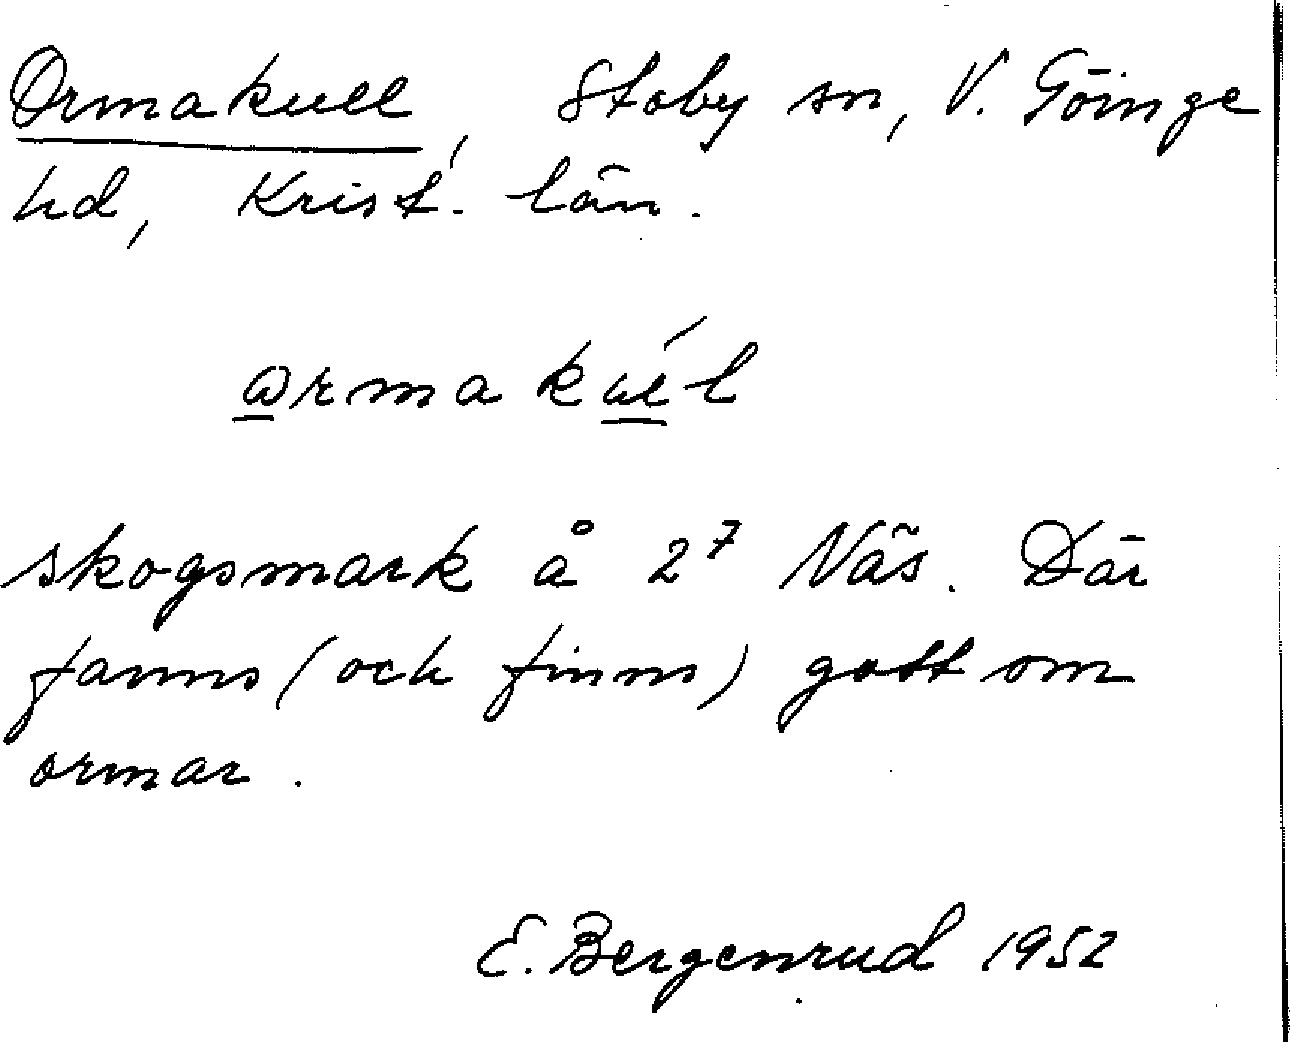 Ormakull, Stoby sn, V. Göinge
hd, Krist. län.
skogsmark å 2⁷ Näs. Där
fanns (och finns) gott om
ormar.
E. Bergenrud 1952